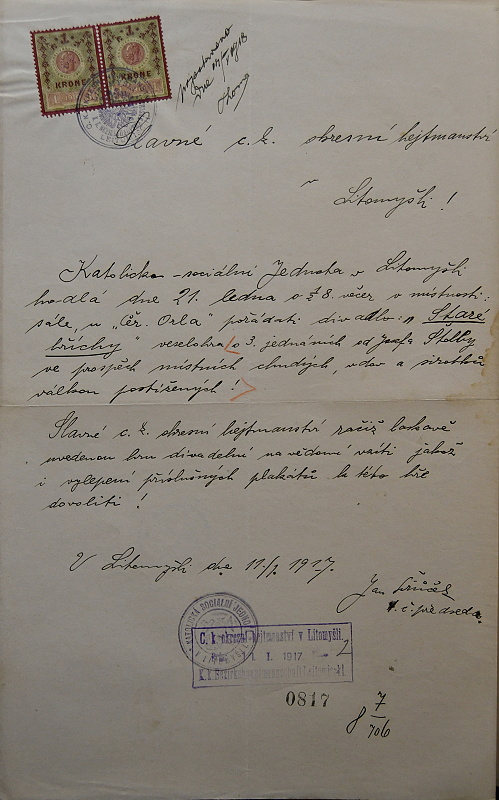 1 1
KRONE KRONE
Dne
Slavné c. k. okresní hejtmanství
v
Litomyšli!
Katolicko-sociální Jednota v Litomyšli
hodlá dne 21. ledna o ½ 8. večer v místnosti:
sále, u „Čer. Orla" pořádati divadlo: „Staré
hříchy" veselohra o 3. jednáních od Josefa Štolby
ve prospěch místních chudých, vdov a sirotků
válkou postižených!
Slavné c. k. okresní hejtmanství račiž laskavě
uvedenou hru divadelní na vědomí vzíti jakož
i vylepení příslušných plakátů k této hře
dovoliti!
V Litomyšli dne 11./1. 1917.
Jan
t. č. předseda.
KATOLICKÁ SOCIÁLNÍ JEDNOTA
V LITOMYŠLI
C. k. okresní hejtmanství v Litomyšli
I. 1917
0817
8 7/706